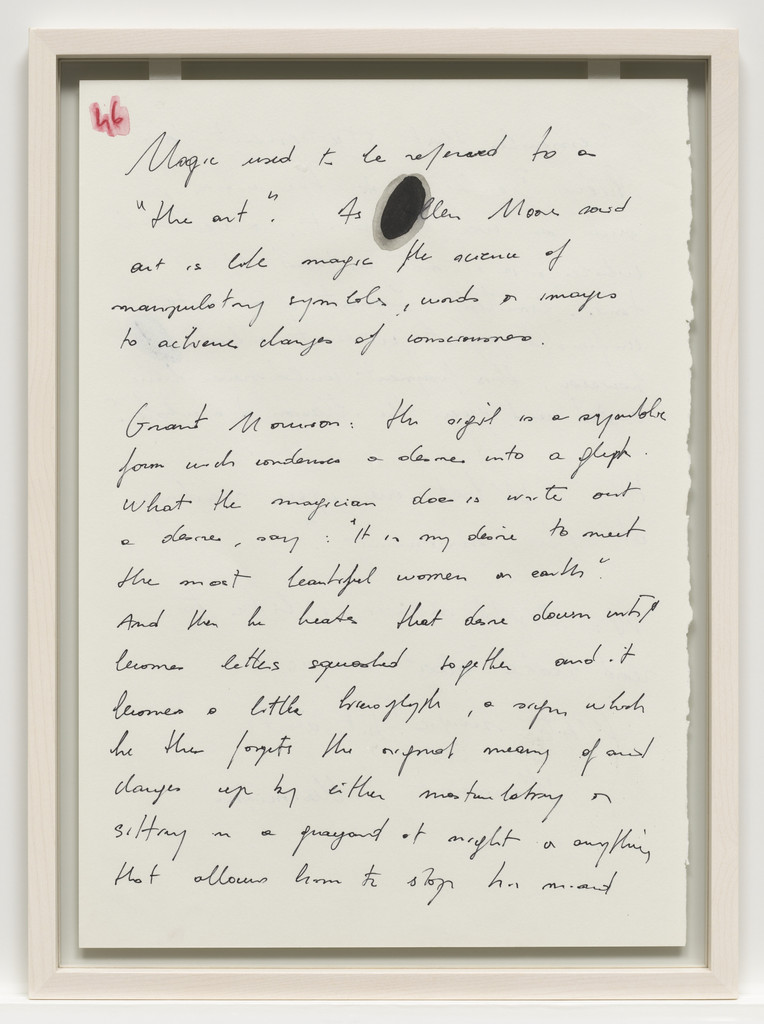 46
Magic used to be refereed to a
"the art". As llen Moore said
art is like magic the science of
manipulating symbols, words or images
to achieve changes of consciousness.
Grant Morrison: the sigil is a symbolic
form wich condenses a desire into a glyph.
What the magician does is write out
a desire, say: "It is my desire to meet
the most beautiful women on earth".
And then he beates that desire down until
becomes letters squashed together and it
becomes a little hieroglyph, a sign which
he then forgets the original meaning of and
charges up by either masturbating or
sitting in a graveyard at night or anything
that allows him to stop his mind